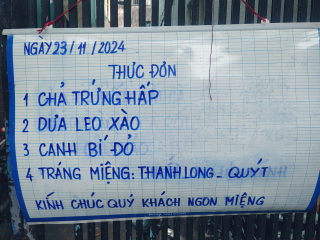 NGÀY 23/11/2024
THỰC ĐƠN
1 CHẢ TRỨNG HẤP
2 DƯA LEO XÀO
3 CANH BÍ ĐỎ
4 TRÁNG MIỆNG: THANH LONG - QUÝT
KÍNH CHÚC QUÝ KHÁCH NGON MIỆNG